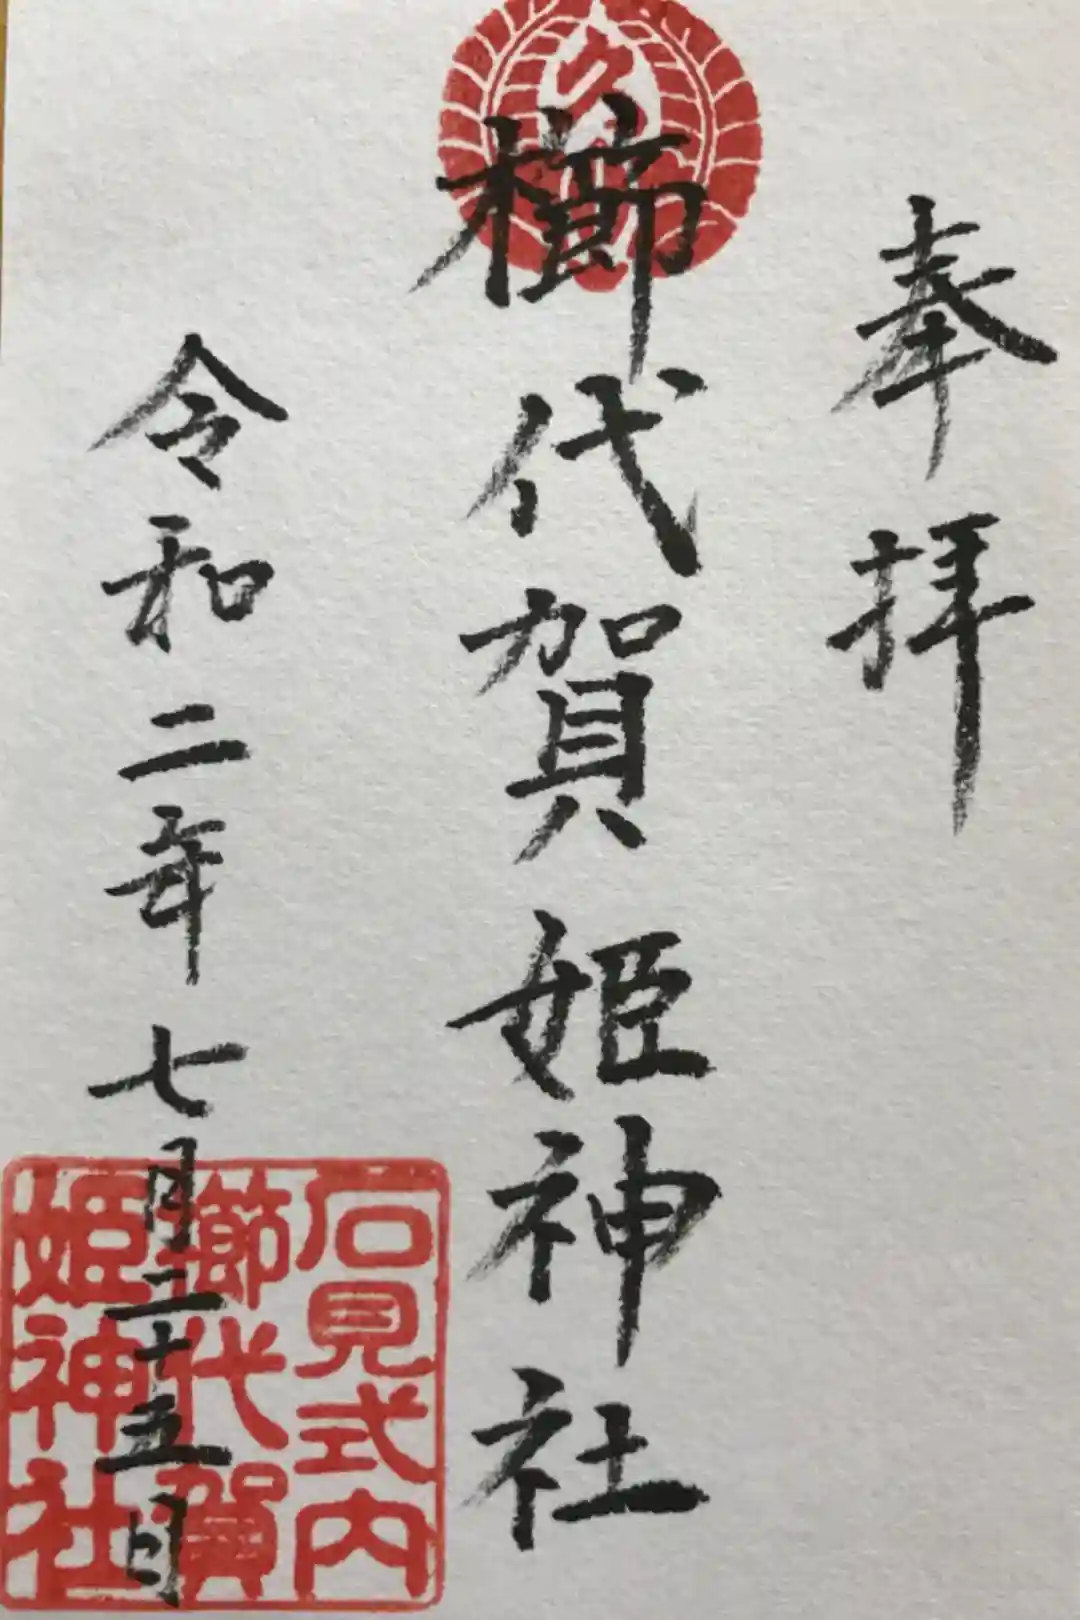 奉拝
櫛代賀姫神社
令和二年七月二十五日
石見式内
櫛代賀
姫神社